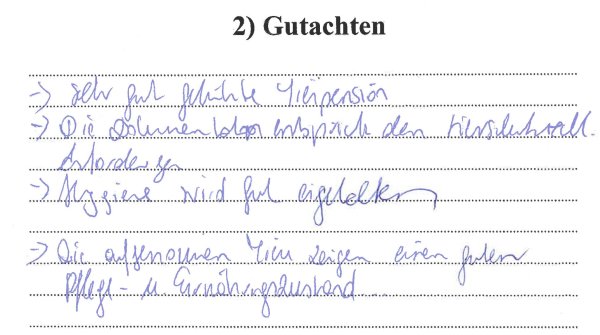 2) Gutachten
-> Sehr gut geführte Tierpension
-> Die Dokumentation entspricht den tierschutzrell.
Anforderungen
-> Hygiene wird gut eingehalten
-> Die aufgenommenen Tiere zeigen einen guten
Pflege- u. Ernährungszustand...